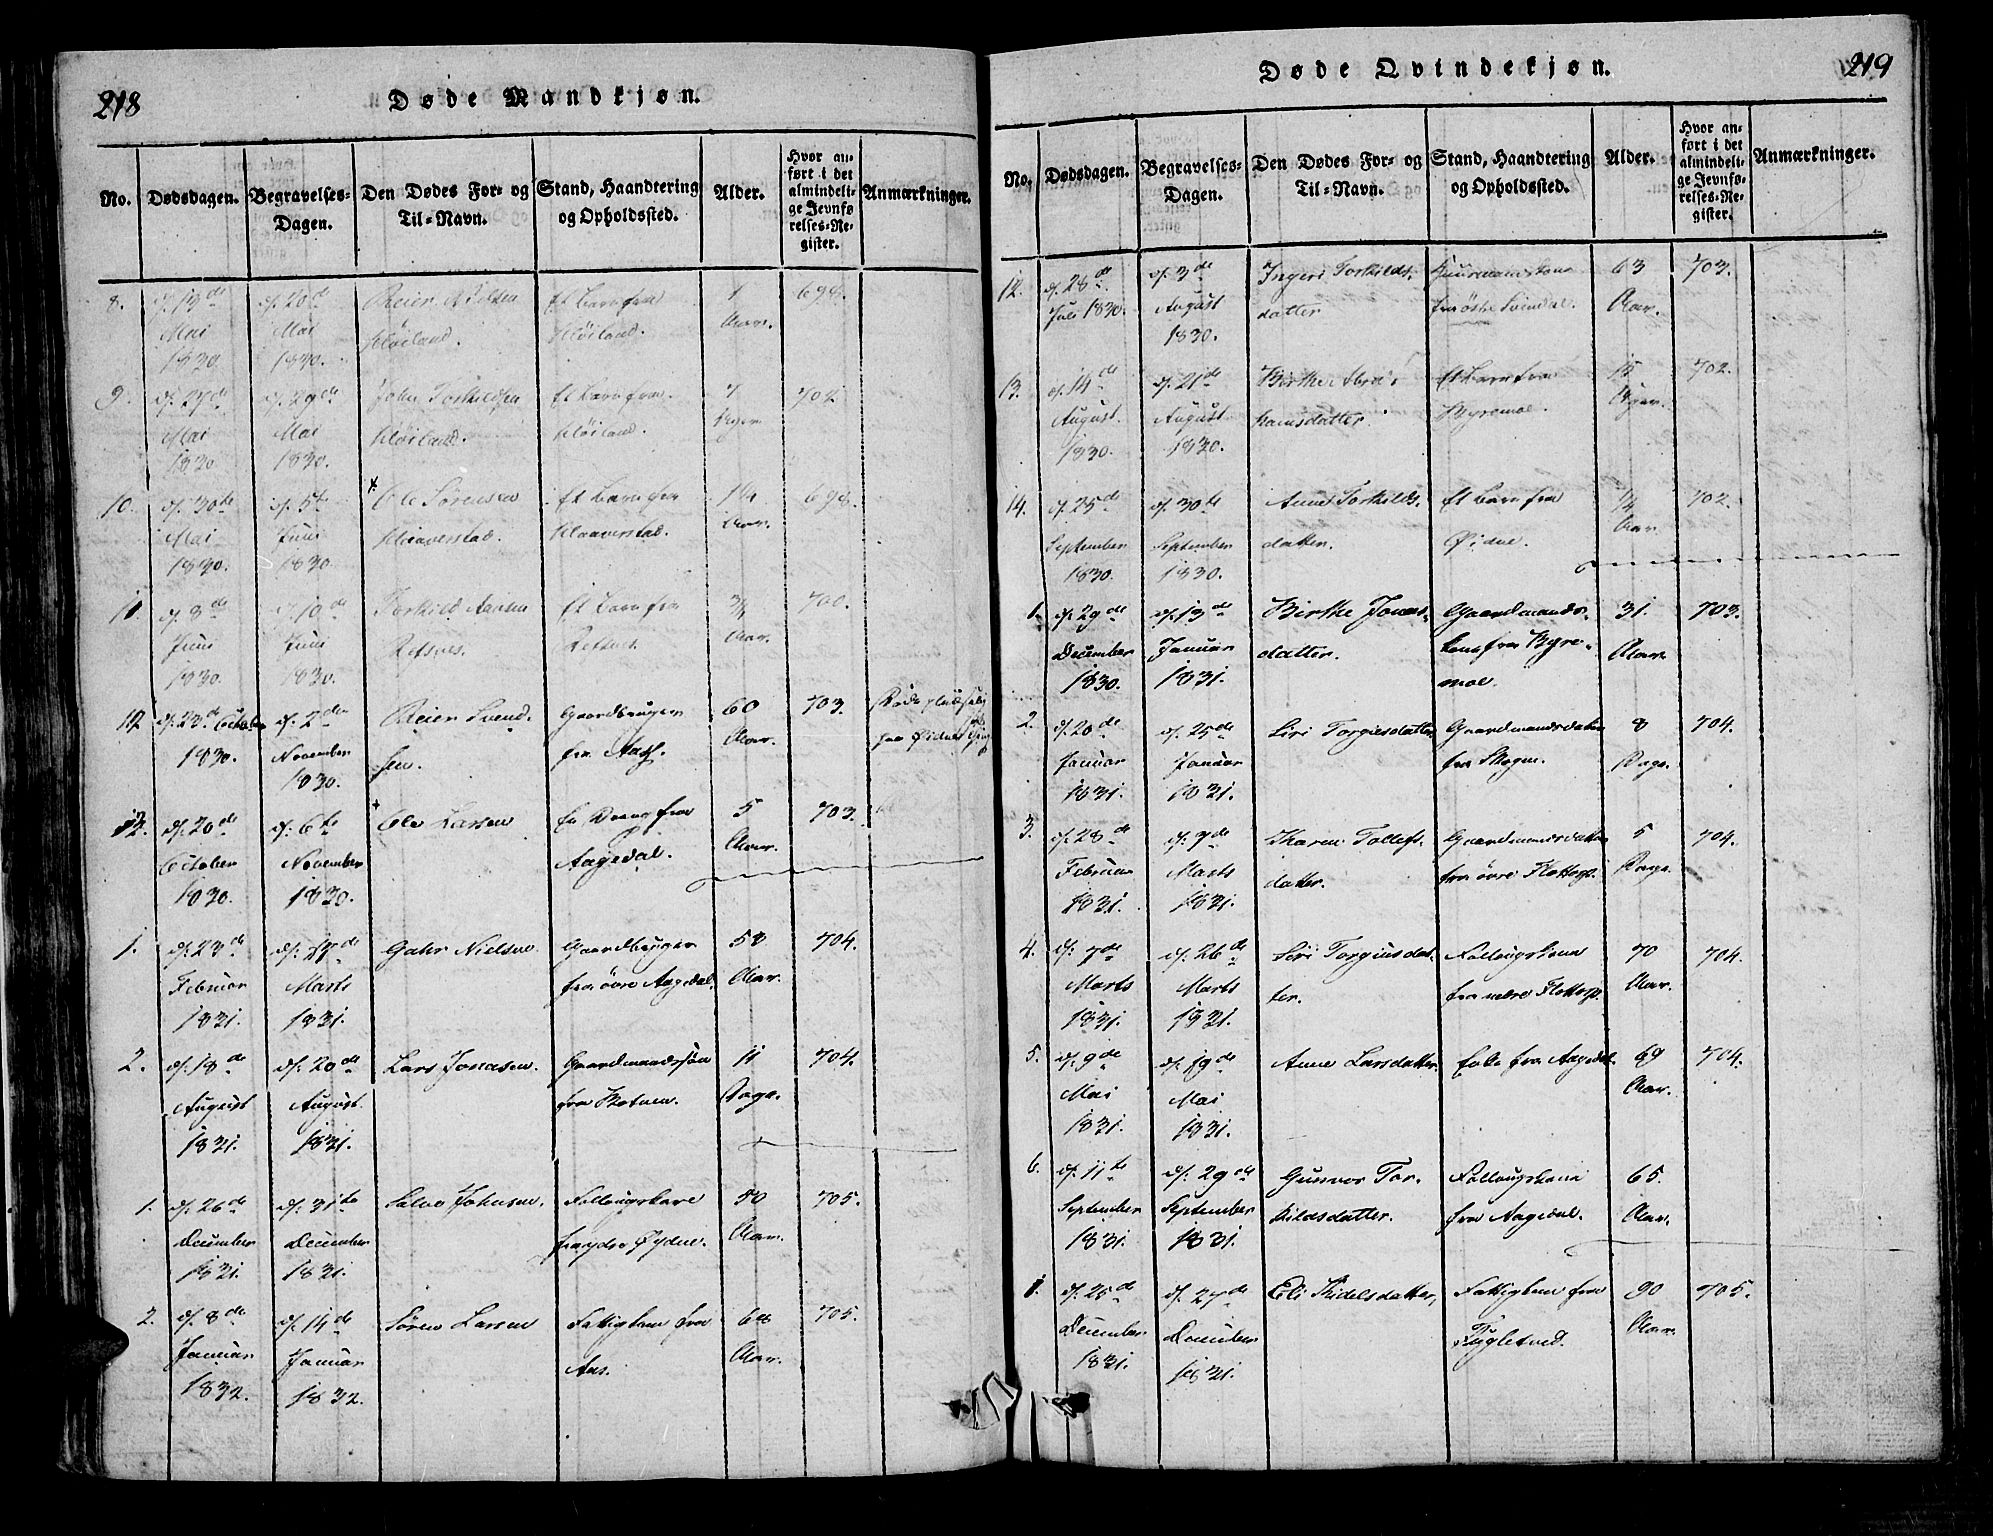 218
Døde Mandkjøn.
No.
Dødsdagen.
Begravelses-
Dagen.
Den Dødes For- og
Til-Navn.
Stand, Haandtering
og Opholdssted.
Alder.
Hvor an-
ført i det
almindeli-
ge Jevnfø
relses-Re-
gister.
Anmærkninger.
8. d. 19de Mai 1830. d. 20d Mai 1830. Reier Nielsen Høiland. Et Barn fra Høiland. 1 Aar. 698.
9. d. 27de Mai 1830 d. 29de Mai 1830. John Torkildsen Høiland. Et Barn fra Høiland. 7 702
10. d. 30te Mai 1830. d. 5te Juni 1830 Ole Sørensen Et Barn fra 1¼ Aar. 698.
11. d. 8de Juni 1830. d. 10de Juni 1830. Torkild Aansen Refsnes. Et Barn fra Refsnes. ¾ Aar. 700.
12 d. 23de October 1830. d. 2den November 1830. Reier Svend-
sen. Gaardbruger fra Aas. 60 Aar. 703.
12. d. 20de October 1830. d. 6te November 1830. Ole Larsen En Dreng fra Aagedal. 5 Aar. 703.
1. d. 23de Februar 1831. d. 17de Marts 1831. Gahr Nielsen Gaardbruger fra øvre Aagedal. 58 Aar. 704.
2. d. 18de August 1831. d. 20de August 1831. Lars Jonasen. Gaardmandssøn fra Kotnen. 11 Dage. 704.
1. d. 26de December 1831. d. 31te December 1831. Salve Johnsen. Follougskare fra ydre Øydne. 50 Aar. 705.
2. d. 8de Januar 1832. d. 14de Januar 1832. Sören Larsen Fattiglem fra Aas. 68 Aar. 705.
219
Døde Qvindekjøn.
No.
Dødsdagen.
Begravelses-
Dagen.
Den Dødes For- og
Til-Navn.
Stand, Haandtering
og Opholdssted.
Alder.
Hvor an-
ført i det
almindeli-
ge Jevnfø-
relses-Re-
gister.
Anmærkninger.
12. d. 28de Juli 1830. d. 3de August 1830. Ingeri Torkilds-
datter Huusmandskone fra östre Svindal. 63 Aar. 703.
13. d. 14de August 1830. d. 21de August 1830. Birthe Abra-
hamsdatter. Et Barn fra Byremoe. 15 702.
14. d. 25de September 1830. d. 30te September 1830. Anne Torkilds-
datter. Et Barn fra Øidne. ¼ Aar. 702.
1. d. 29de December 1830. d. 13de Januar 1831. Birthe Jonas-
datter. Gaardmands-
kone fra Byre-
moe. 31. Aar. 703.
2. d. 20de Januar 1831. d. 25de Januar 1831. Siri Torgiesdatter Gaardmandsdatter fra Skogen. 8 Dage. 704.
3. d. 28de Februar 1831. d. 7de Marts 1831. Karen Tollefs-
datter. Gaardmandsdatter fra övre Flottorp. 5 Dage. 704.
4. d. 7de Marts 1831. d. 26de Marts 1831. Siri Torgiusdat-
ter. Follougskone fra nedre Flottorp. 70 Aar. 704.
5. d. 9de Mai 1831. d. 19de Mai 1831. Anne Larsdatter Enke fra Aagedal. 69 Aar. 704.
6. d. 11te September 1831. d. 29de September 1831. Gunvor Tor-
kildsdatter. Follougskone fra Aagedal. 65. Aar.
1. d. 25de December 1831. d. 27de December 1831. Eli Kidelsdatter, Fattiglem fra Tyglefved. 90 Aar. 705.